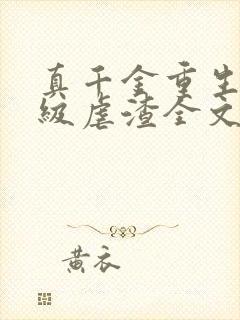 真千金重生
级虐渣全文
黄衣